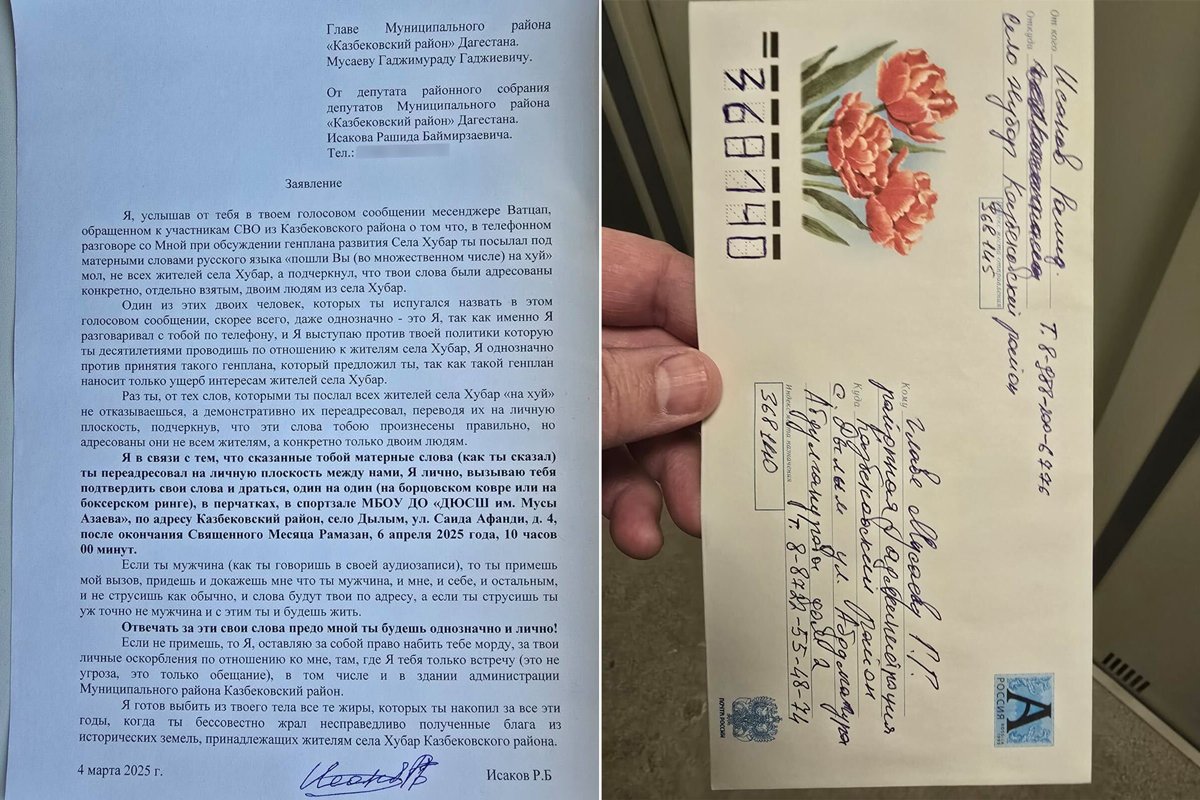 Главе Муниципального района
«Казбековский район» Дагестана.
Мусаеву Гаджимураду Гаджиевичу.
От депутата районного собрания
депутатов Муниципального района
«Казбековский район» Дагестана.
Исакова Рашида Баймирзаевича.
Тел.:
Заявление
Я, услышав от тебя в твоем голосовом сообщении месенджере Ватцап,
обращенном к участникам СВО из Казбековского района о том что, в телефонном
разговоре со Мной при обсуждении генплана развития Села Хубар ты посылал под
матерными словами русского языка «пошли Вы (во множественном числе) на хуй»
мол, не всех жителей села Хубар, а подчеркнул, что твои слова были адресованы
конкретно, отдельно взятым, двоим людям из села Хубар.
Один из этих двоих человек, которых ты испугался назвать в этом
голосовом сообщении, скорее всего, даже однозначно - это Я, так как именно Я
разговаривал с тобой по телефону, и Я выступаю против твоей политики которую
ты десятилетиями проводишь по отношению к жителям села Хубар, Я однозначно
против принятия такого генплана, который предложил ты, так как такой генплан
наносит только ущерб интересам жителей села Хубар.
Раз ты, от тех слов, которыми ты послал всех жителей села Хубар «на хуй»
не отказываешься, а демонстративно их переадресовал, переводя их на личную
плоскость, подчеркнув, что эти слова тобою произнесены правильно, но
адресованы они не всем жителям, а конкретно только двоим людям.
Я в связи с тем, что сказанные тобой матерные слова (как ты сказал)
ты переадресовал на личную плоскость между нами, Я лично, вызываю тебя
подтвердить свои слова и драться, один на один (на борцовском ковре или на
боксерском ринге), в перчатках, в спортзале МБОУ ДО «ДЮСШ им. Мусы
Азаева», по адресу Казбековский район, село Дылым, ул. Саида Афанди, д. 4,
после окончания Священного Месяца Рамазан, 6 апреля 2025 года, 10 часов
00 минут.
Если ты мужчина (как ты говоришь в своей аудиозаписи), то ты примешь
мой вызов, придешь и докажешь мне что ты мужчина, и мне, и себе, и остальным,
и не струсишь как обычно, и слова будут твои по адресу, а если ты струсишь ты
уж точно не мужчина и с этим ты и будешь жить.
Отвечать за эти свои слова предо мной ты будешь однозначно и лично!
Если не примешь, то Я, оставляю за собой право набить тебе морду, за твои
личные оскорбления по отношению ко мне, там, где Я тебя только встречу (это не
угроза, это только обещание), в том числе и в здании администрации
Муниципального района Казбековский район.
Я готов выбить из твоего тела все те жиры, которых ты накопил за все эти
годы, когда ты бессовестно жрал несправедливо полученные блага из
исторических земель, принадлежащих жителям села Хубар Казбековского района.
4 марта 2025 г.
Исаков Р.Б
От кого Исаков Рашид.
Откуда
село Хубар Казбековский район
368145
Т. 8-988-200-6776
368140
Кому Главе Мусаеву Г.Г.
районная администрация
Куда Казбековский район
с. Дылым ул. Абдлмажида
Абдулгапурова дом 2
Индекс места назначения
368140
Т 8-8722-55-48-74
А
РОССИЯ
ПОЧТА РОССИИ